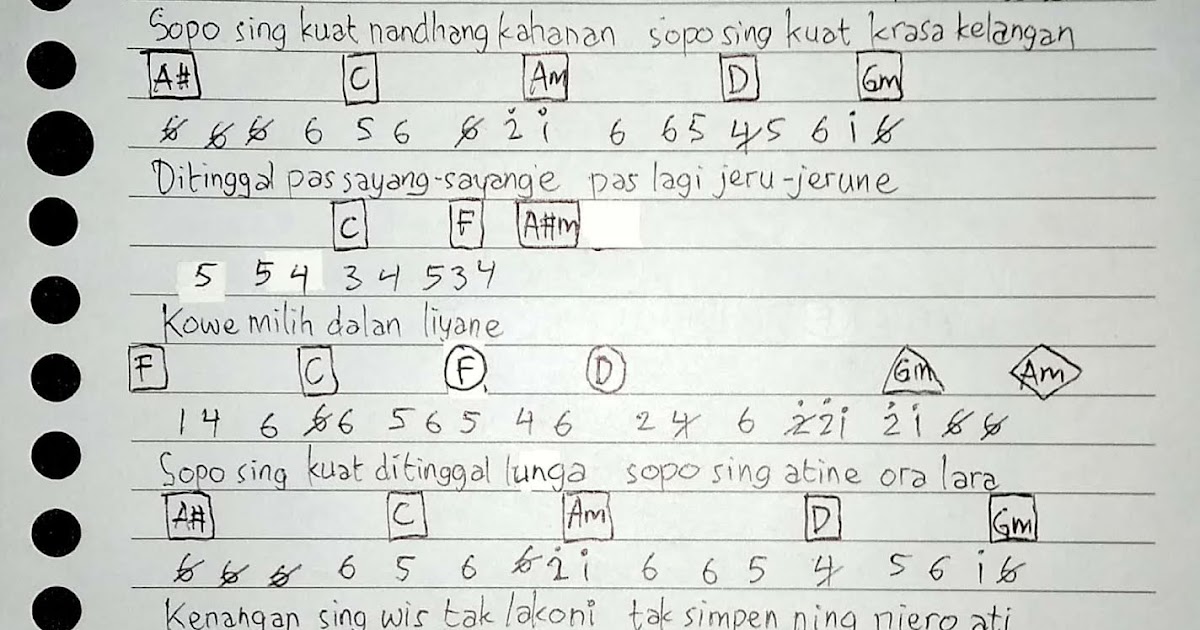 Sopo sing kuat nandhang kahanan sopo sing kuat krasa kelangan
A# C Am D Gm
6̸ 6̸ 6̸ 6 5 6 6̸ 2̇ 1̇ 6 6 5 4̸ 5 6 1̇ 6̸
Ditinggal pas sayang-sayange pas lagi jeru-jerune
C F A#m
5 5 4 3 4 5 3 4
Kowe milih dalan liyane
F C F D Gm Am
1 4 6 6̸ 6 5 6 5 4 6 2 4̸ 6 2̸̇ 2̇ 1̇ 2̇ 1̇ 6̸ 6̸
Sopo sing kuat ditinggal lunga sopo sing atine ora lara
A# C Am D Gm
6̸ 6̸ 6̸ 6 5 6 6̸ 2̇ 1̇ 6 6 5 4̸ 5 6 1̇ 6̸
Kenangan sing wis tak lakoni tak simpen ning njero ati